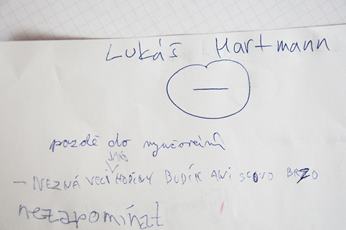 Lukáš Hartmann
—
pozdě do vyučování
jde
– NEZNÁ VĚCI HODINY BUDÍK ANI SLOVO BRZO
nezapomínat